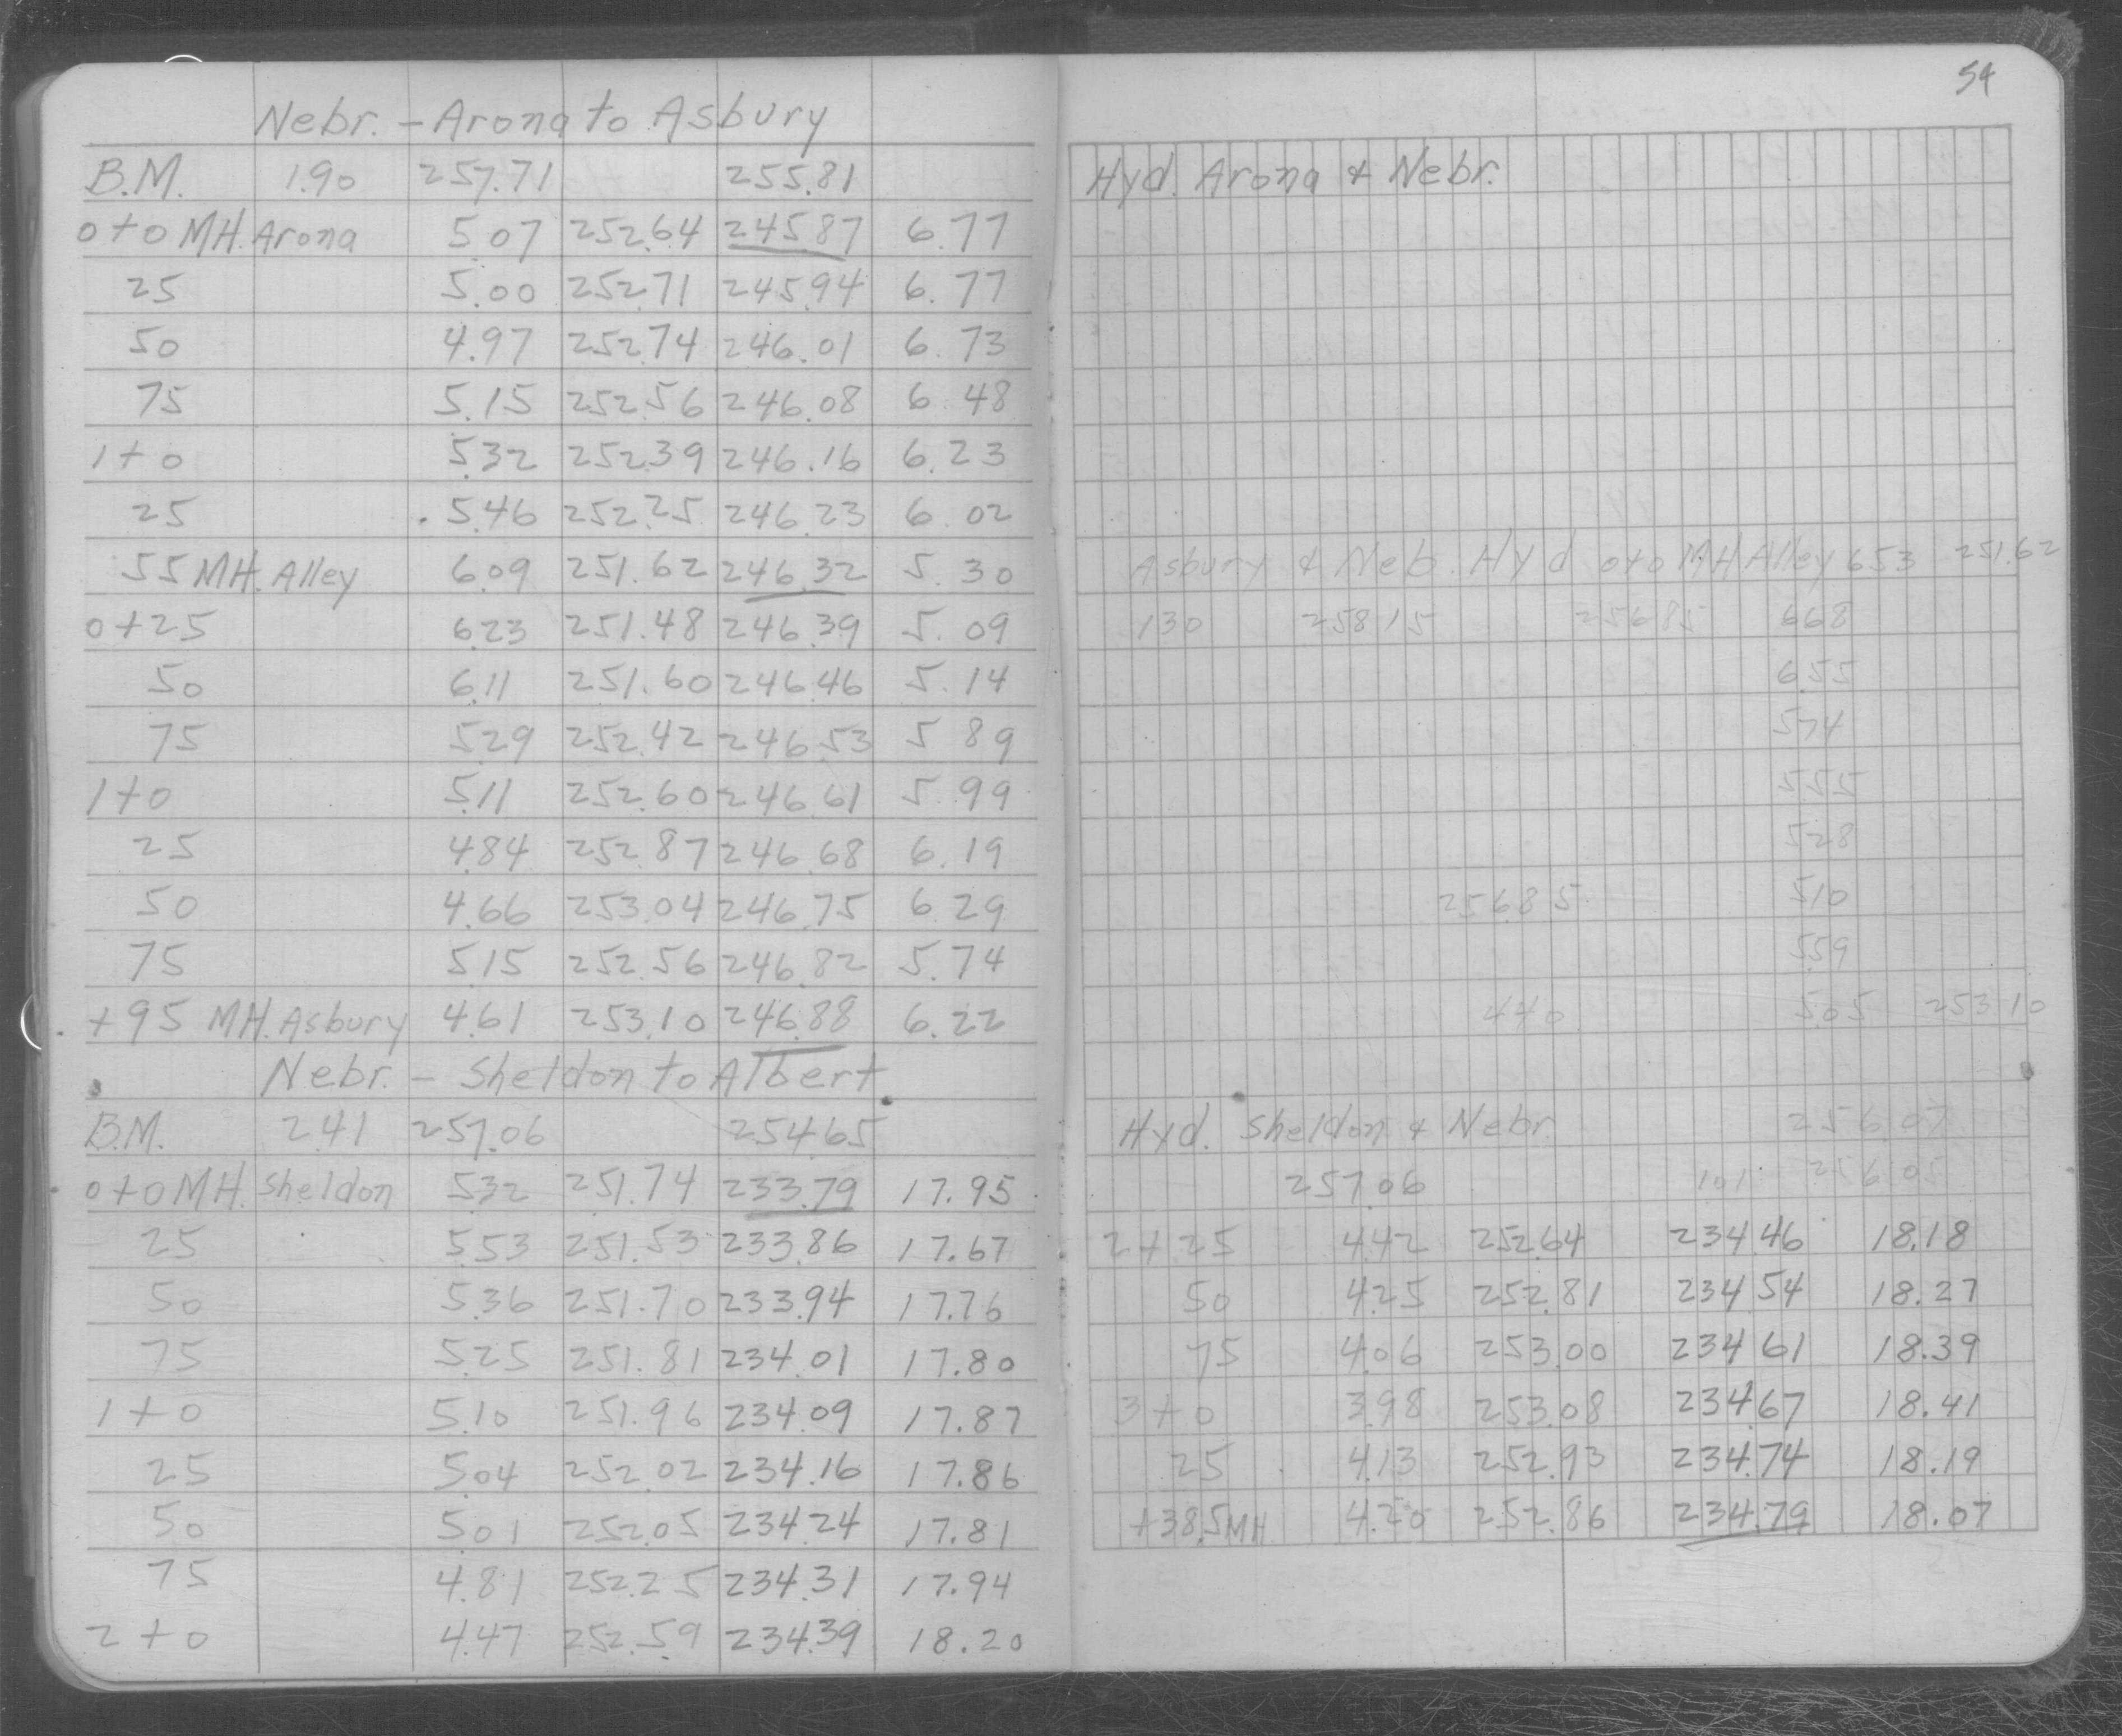 Nebr. - Arona to Asbury
B.M. 1.90 257.71 255.81
0+0 MH. Arona 5.07 252.64 245.87 6.77
25 5.00 252.71 245.94 6.77
50 4.97 252.74 246.01 6.73
75 5.15 252.56 246.08 6.48
1+0 5.32 252.39 246.16 6.23
25 5.46 252.25 246.23 6.02
55 MH. Alley 6.09 251.62 246.32 5.30
0+25 6.23 251.48 246.39 5.09
50 6.11 251.60 246.46 5.14
75 5.29 252.42 246.53 5.89
1+0 5.11 252.60 246.61 5.99
25 4.84 252.87 246.68 6.19
50 4.66 253.04 246.75 6.29
75 5.15 252.56 246.82 5.74
+95 MH. Asbury 4.61 253.10 246.88 6.22
Nebr. - Sheldon to Albert
B.M. 2.41 257.06 254.65
0+0 MH. Sheldon 5.32 251.74 233.79 17.95
25 5.53 251.53 233.86 17.67
50 5.36 251.70 233.94 17.76
75 5.25 251.81 234.01 17.80
1+0 5.10 251.96 234.09 17.87
25 5.04 252.02 234.16 17.86
50 5.01 252.05 234.24 17.81
75 4.81 252.25 234.31 17.94
2+0 4.47 252.59 234.39 18.20
54
Hyd. Arona & Nebr.
Asbury & Neb. Hyd 0+0 MH Alley 653 251.62
130 258 15 256 85 668
6.55
574
5.55
528
256.85 510
559
440 5.05 253 10
Hyd. Sheldon & Nebr. 256.07
257.06 101 256.05
2+25 4.42 252.64 234.46 18.18
50 4.25 252.81 234.54 18.27
75 4.06 253.00 234.61 18.39
3+0 3.98 253.08 234.67 18.41
25 4.13 252.93 234.74 18.19
+38.5 MH 4.20 252.86 234.79 18.07